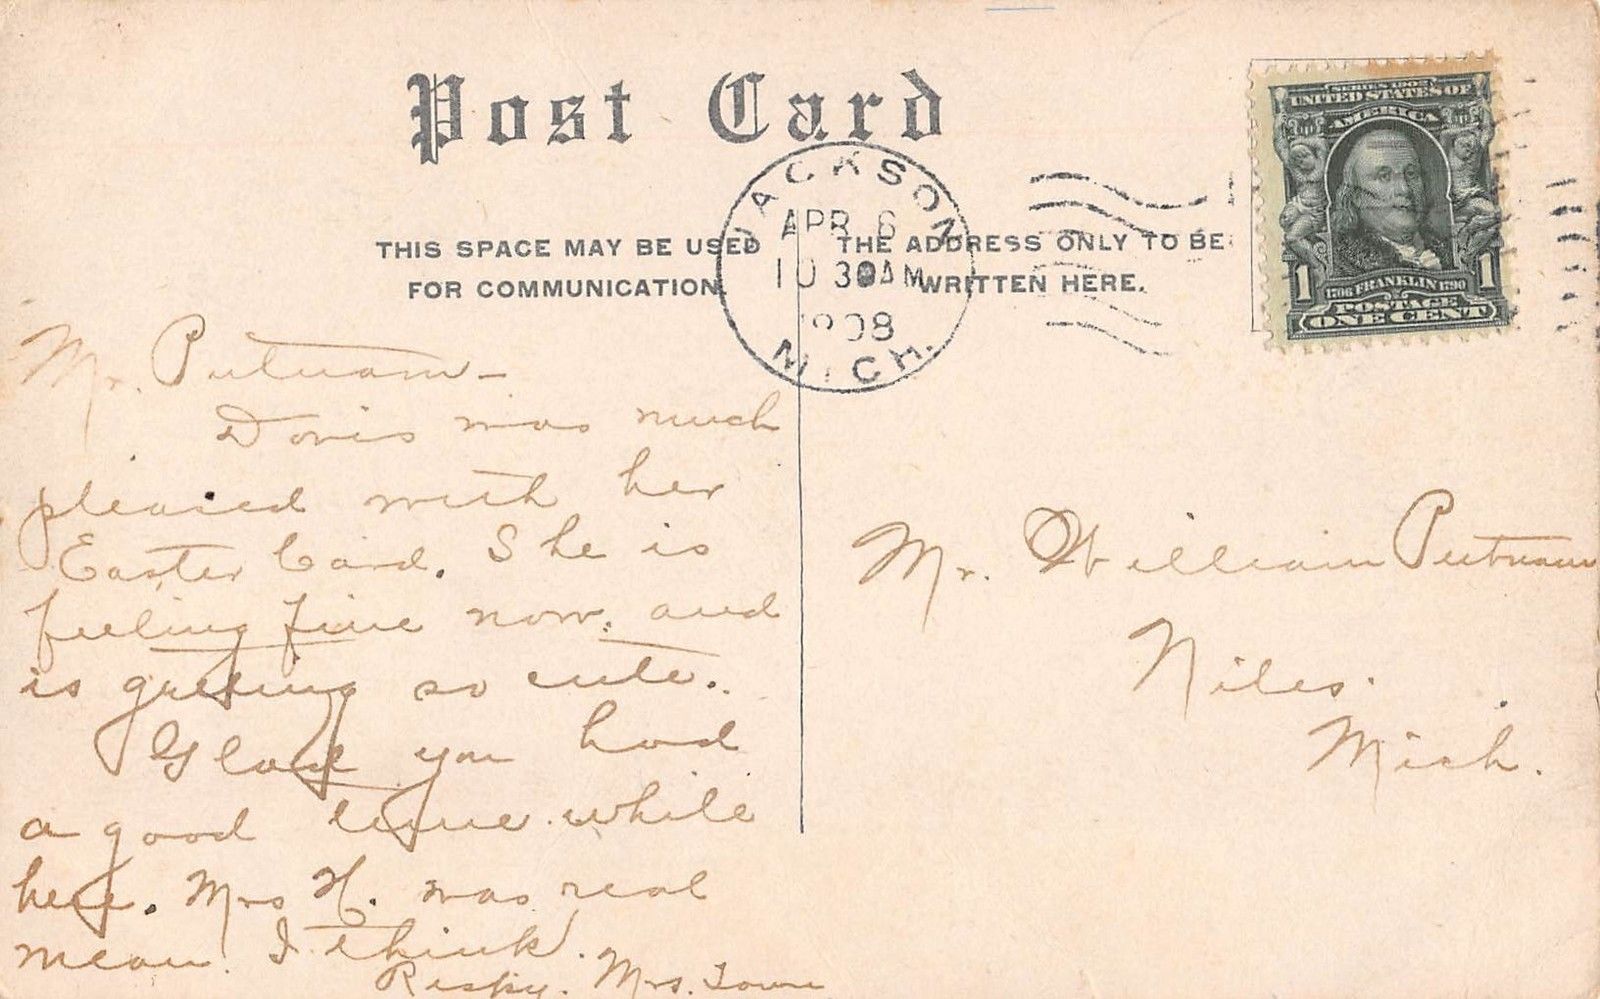 Post Card
THIS SPACE MAY BE USED
FOR COMMUNICATION.
THE ADDRESS ONLY TO BE
WRITTEN HERE.
JACKSON
APR 6
10 30 AM
1908
MICH.
SERIES 1902
UNITED STATES OF
AMERICA
1 1
1706 FRANKLIN 1790
POSTAGE
ONE CENT
Mr. Putnam –
Doris was much
pleased with her
Easter Card. She is
feeling fine now. and
is so cute.
Glad you had
a good time while
here. Mrs H. was real
mean. I think.
Respy. Mrs.
Mr. William Putnam
Niles.
Mich.